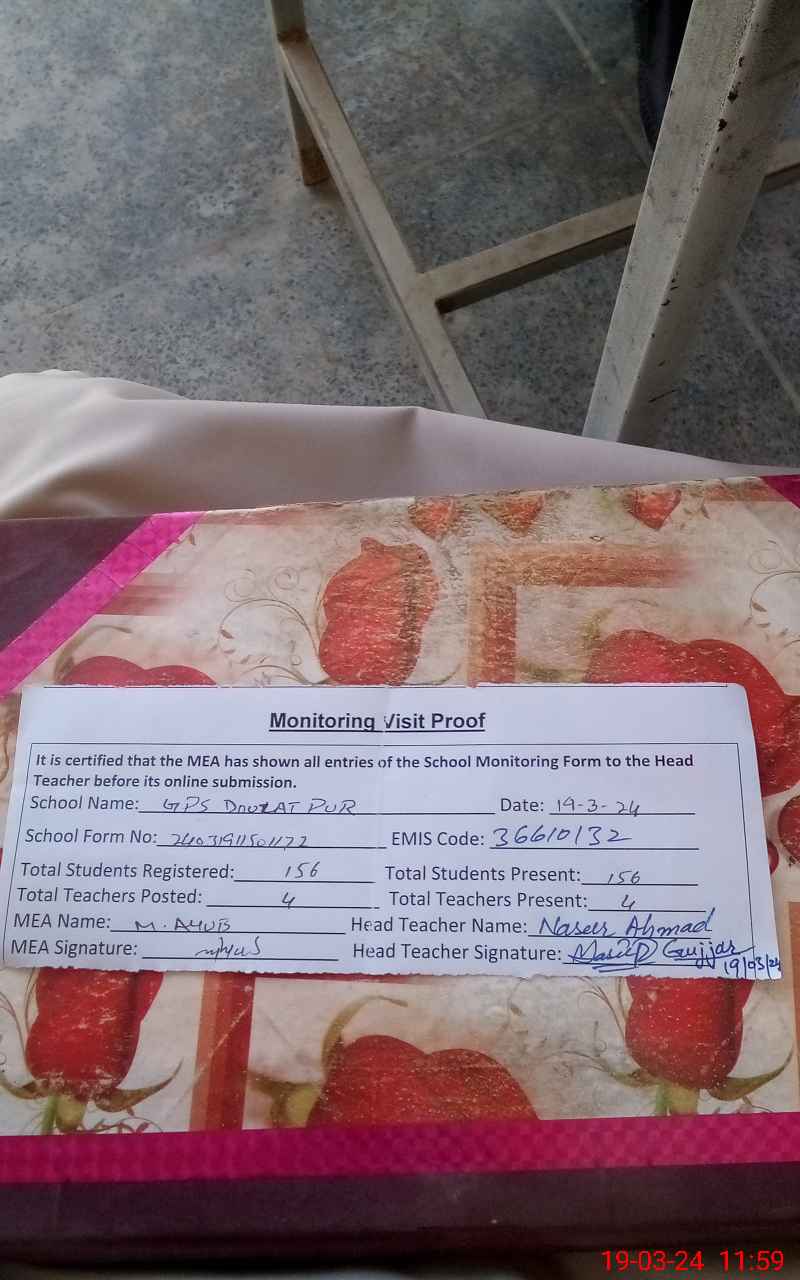 Monitoring Visit Proof
It is certified that the MEA has shown all entries of the School Monitoring Form to the Head
Teacher before its online submission.
School Name: GPS DOULAT PUR Date: 19-3-24
School Form No: EMIS Code: 36610132
Total Students Registered: 156 Total Students Present: 156
Total Teachers Posted: 4 Total Teachers Present: 4
MEA Name: M. AYUB Head Teacher Name: Naseer Ahmad
MEA Signature: Head Teacher Signature: Gujjar
19/03/24
19-03-24 11:59